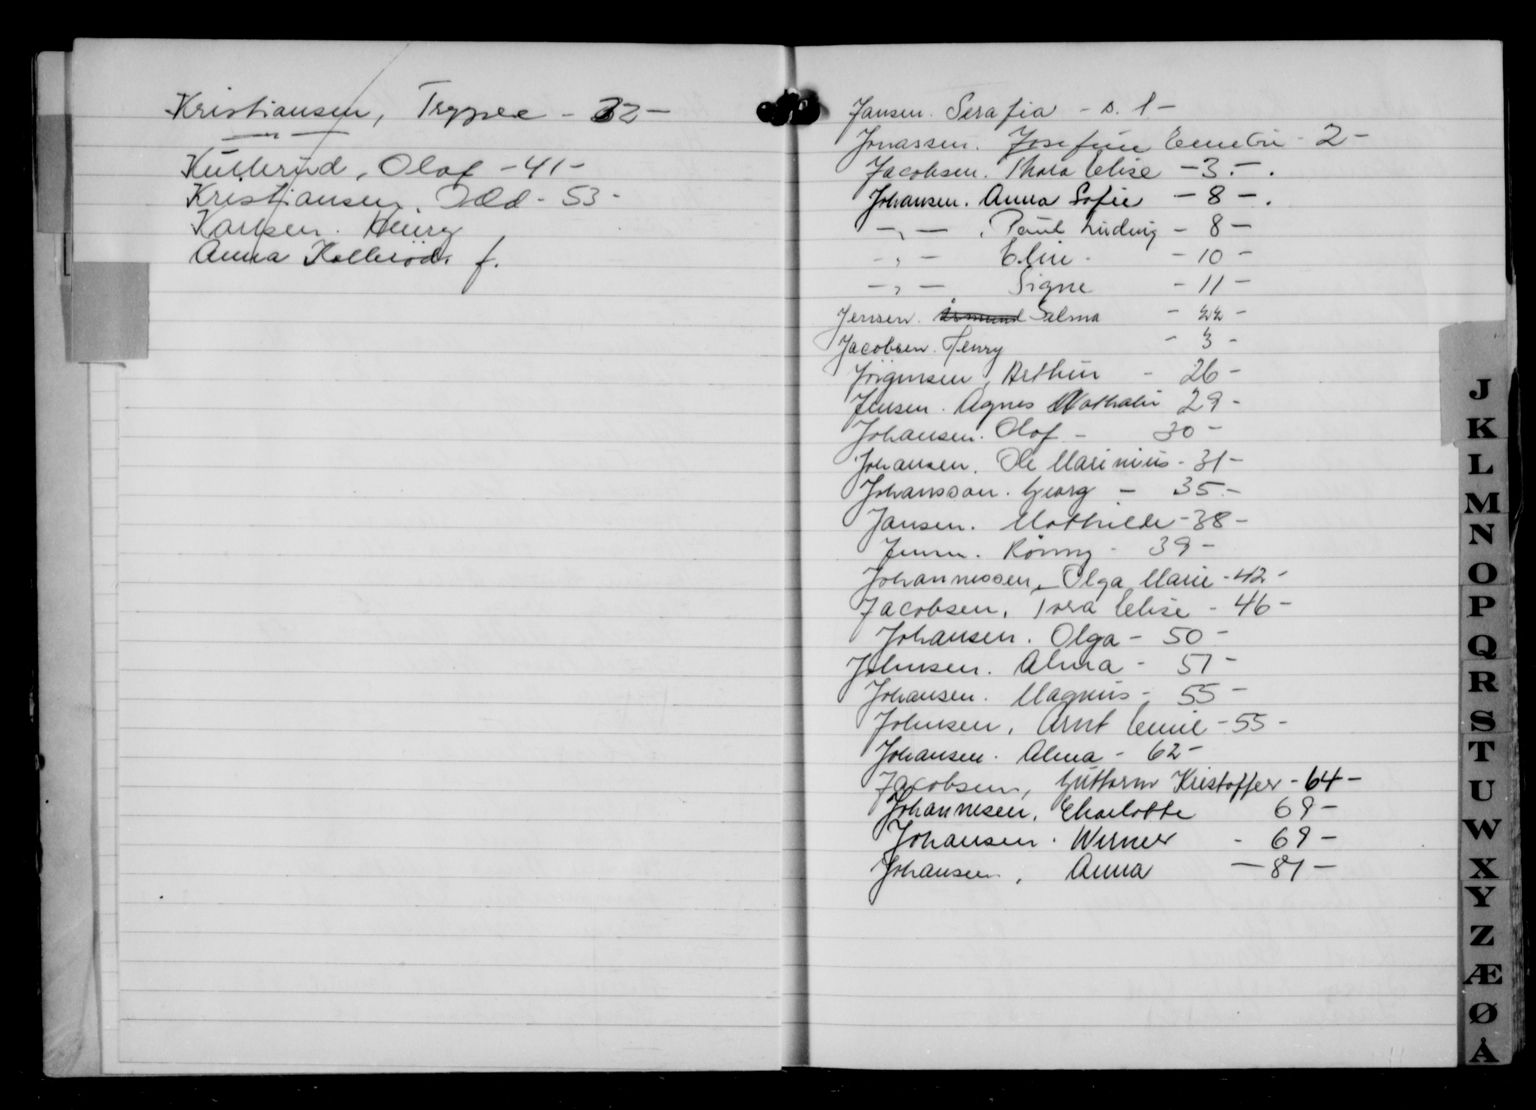 Kristiansen, Trygve - 32 -
Kullerud, Olaf - 41 -
Kristiansen, Odd - 53 -
Karlsen. Henry
Anna Kollerød f.
Jansen. Serafia - s. 1 -
Jonassen. Josefine Emelie - 2 -
Jacobsen. Thora Elise - 3. - .
Johansen. Anna Sofie - 8 - .
- , - . Paul Ludvig - 8 -
- , - Elin - 10 -
- , - Signe - 11 -
Jensen. Salma - 22 -
Jacobsen. Henry - 3 -
Jörgensen, Arthur - 26 -
Jensen. Agnes Nathalie 29 -
Johansen. Olaf - 30 -
Johansen. Ole Marinius - 31 -
Johansson. Georg - 35. -
Jansen. Mathilde - 38 -
Jensen. Ronny - 39 -
Johannessen, Olga Marie - 42 -
Jacobsen, Tora Elise - 46 -
Johansen. Olga - 50 -
Johnsen. Alma - 51 -
Johansen. Magnus - 55 -
Johnsen, Arnt Emil - 55 -
Johansen. Alma - 62 -
Jacobsen, Guttorm Kristoffer - 64 -
Johannesen, Charlotte 69 -
Johansen. Werner - 69 -
Johansen, Anna - 81 -
J
K
L
M
N
O
P
Q
R
S
T
U
W
X
Y
Z
Æ
Ø
Å